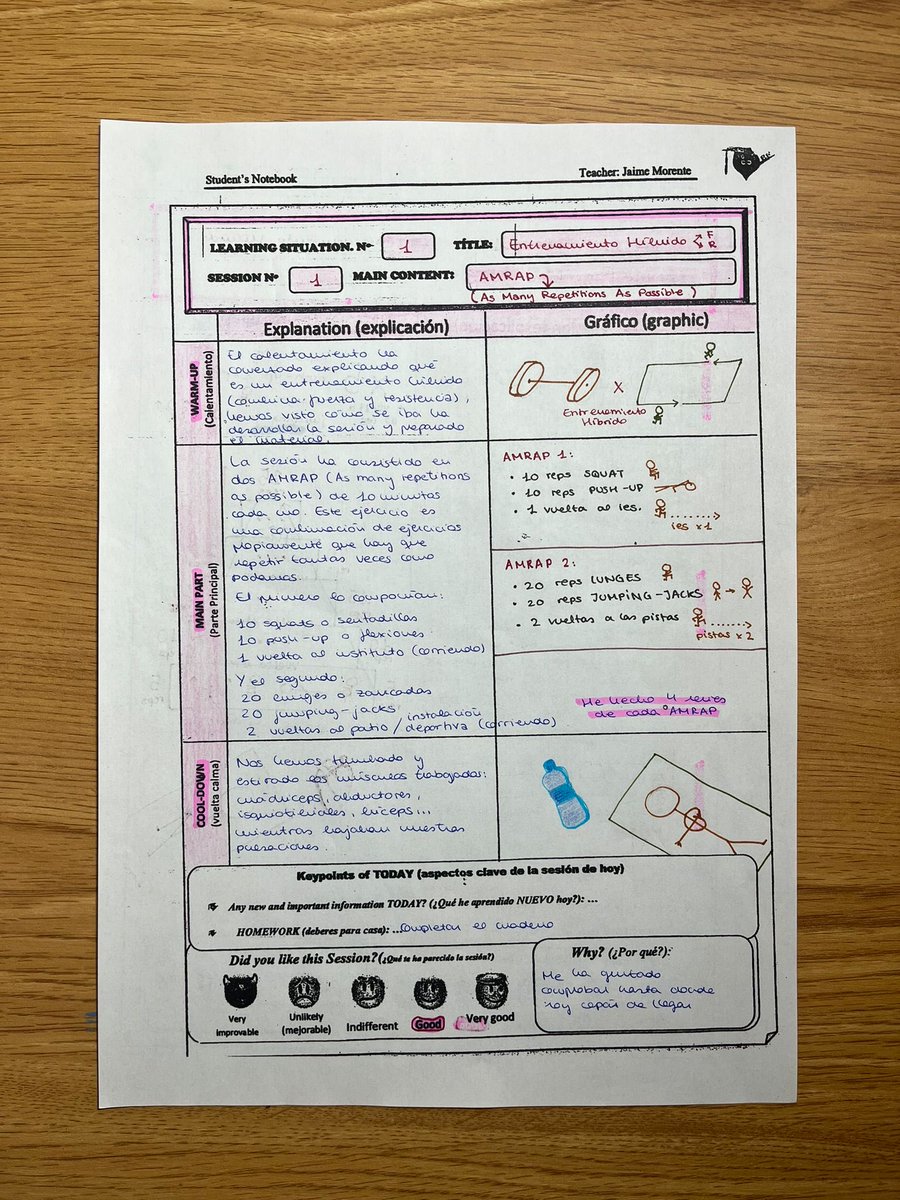 Student's Notebook
Teacher: Jaime Morente
LEARNING SITUATION. Nº 1 TÍTLE: Entrenamiento Híbrido F R
SESSION Nº 1 MAIN CONTENT: AMRAP
(As Many Repetitions As Possible)
Explanation (explicación)
Gráfico (graphic)
WARM-UP
(Calentamiento)
El calentamiento ha
comentado explicando qué
es un entrenamiento híbrido
(combina fuerza y resistencia),
hemos visto cómo se iba ha
desarrollar la sesión y preparado
el material.
x
Entrenamiento
Híbrido
MAIN PART
(Parte Principal)
La sesión ha consistido en
dos AMRAP (As many repetitions
as possible) de 10 minutos
cada uno. Este ejercicio es
una combinación de ejercicios
propiamente que hay que
repetir tantas veces como
podamos.
El primero lo componían:
10 squats o sentadillas
10 push-up o flexiones
1 vuelta al instituto (corriendo)
Y el segundo:
20 lunges o zancadas
20 jumping-jacks
2 vueltas al patio / instalación deportiva (corriendo)
AMRAP 1:
• 10 reps SQUAT
• 10 reps PUSH-UP
• 1 vuelta al ies.
ies x 1
AMRAP 2:
• 20 reps LUNGES
• 20 reps JUMPING-JACKS
• 2 vueltas a las pistas
pistas x 2
He hecho 4 series
de cada AMRAP
COOL-DOWN
(vuelta calma)
Nos hemos tumbado y
estirado los músculos trabajados:
cuádriceps, abductores,
isquiotibiales, bíceps...
mientras bajaban nuestras
pulsaciones.
Keypoints of TODAY (aspectos clave de la sesión de hoy)
Any new and important information TODAY? (¿Qué he aprendido NUEVO hoy?): ...
HOMEWORK (deberes para casa): ...Completar el cuaderno
Did you like this Session? (¿Qué te ha parecido la sesión?)
Very improvable
Unlikely (mejorable)
Indifferent
Good
Very good
Why? (¿Por qué?):
Me ha gustado
comprobar hasta donde
soy capaz de llegar